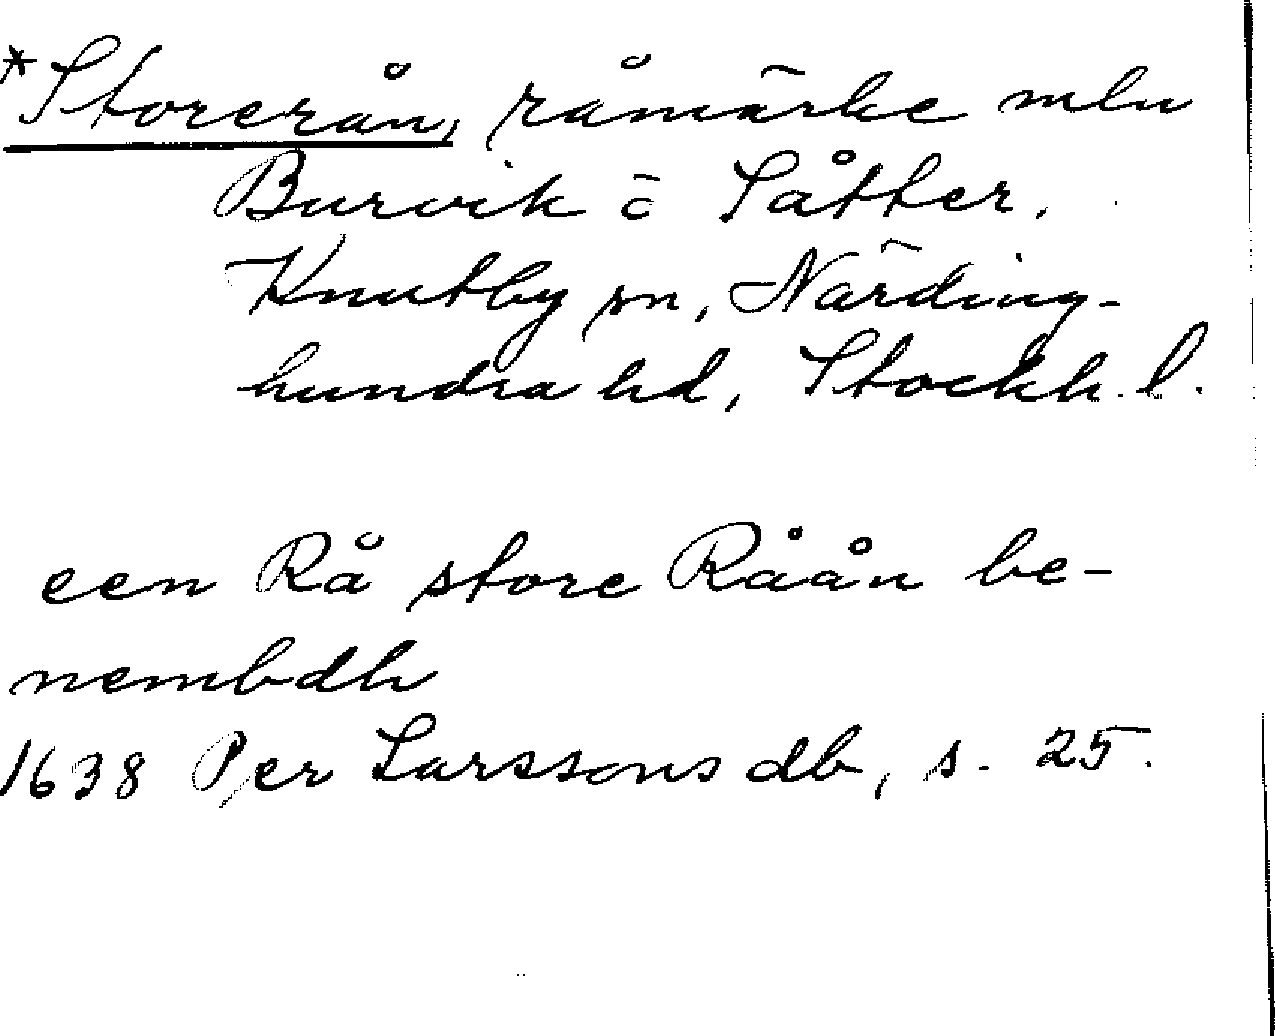 *Storerån, råmärke mln
Burvik ö Såtter.
Knutby sn, Närding-
hundra hd, Stockh. l.
een Rå store Råån be-
nembdh
1638 Per Larssons db, s. 25.